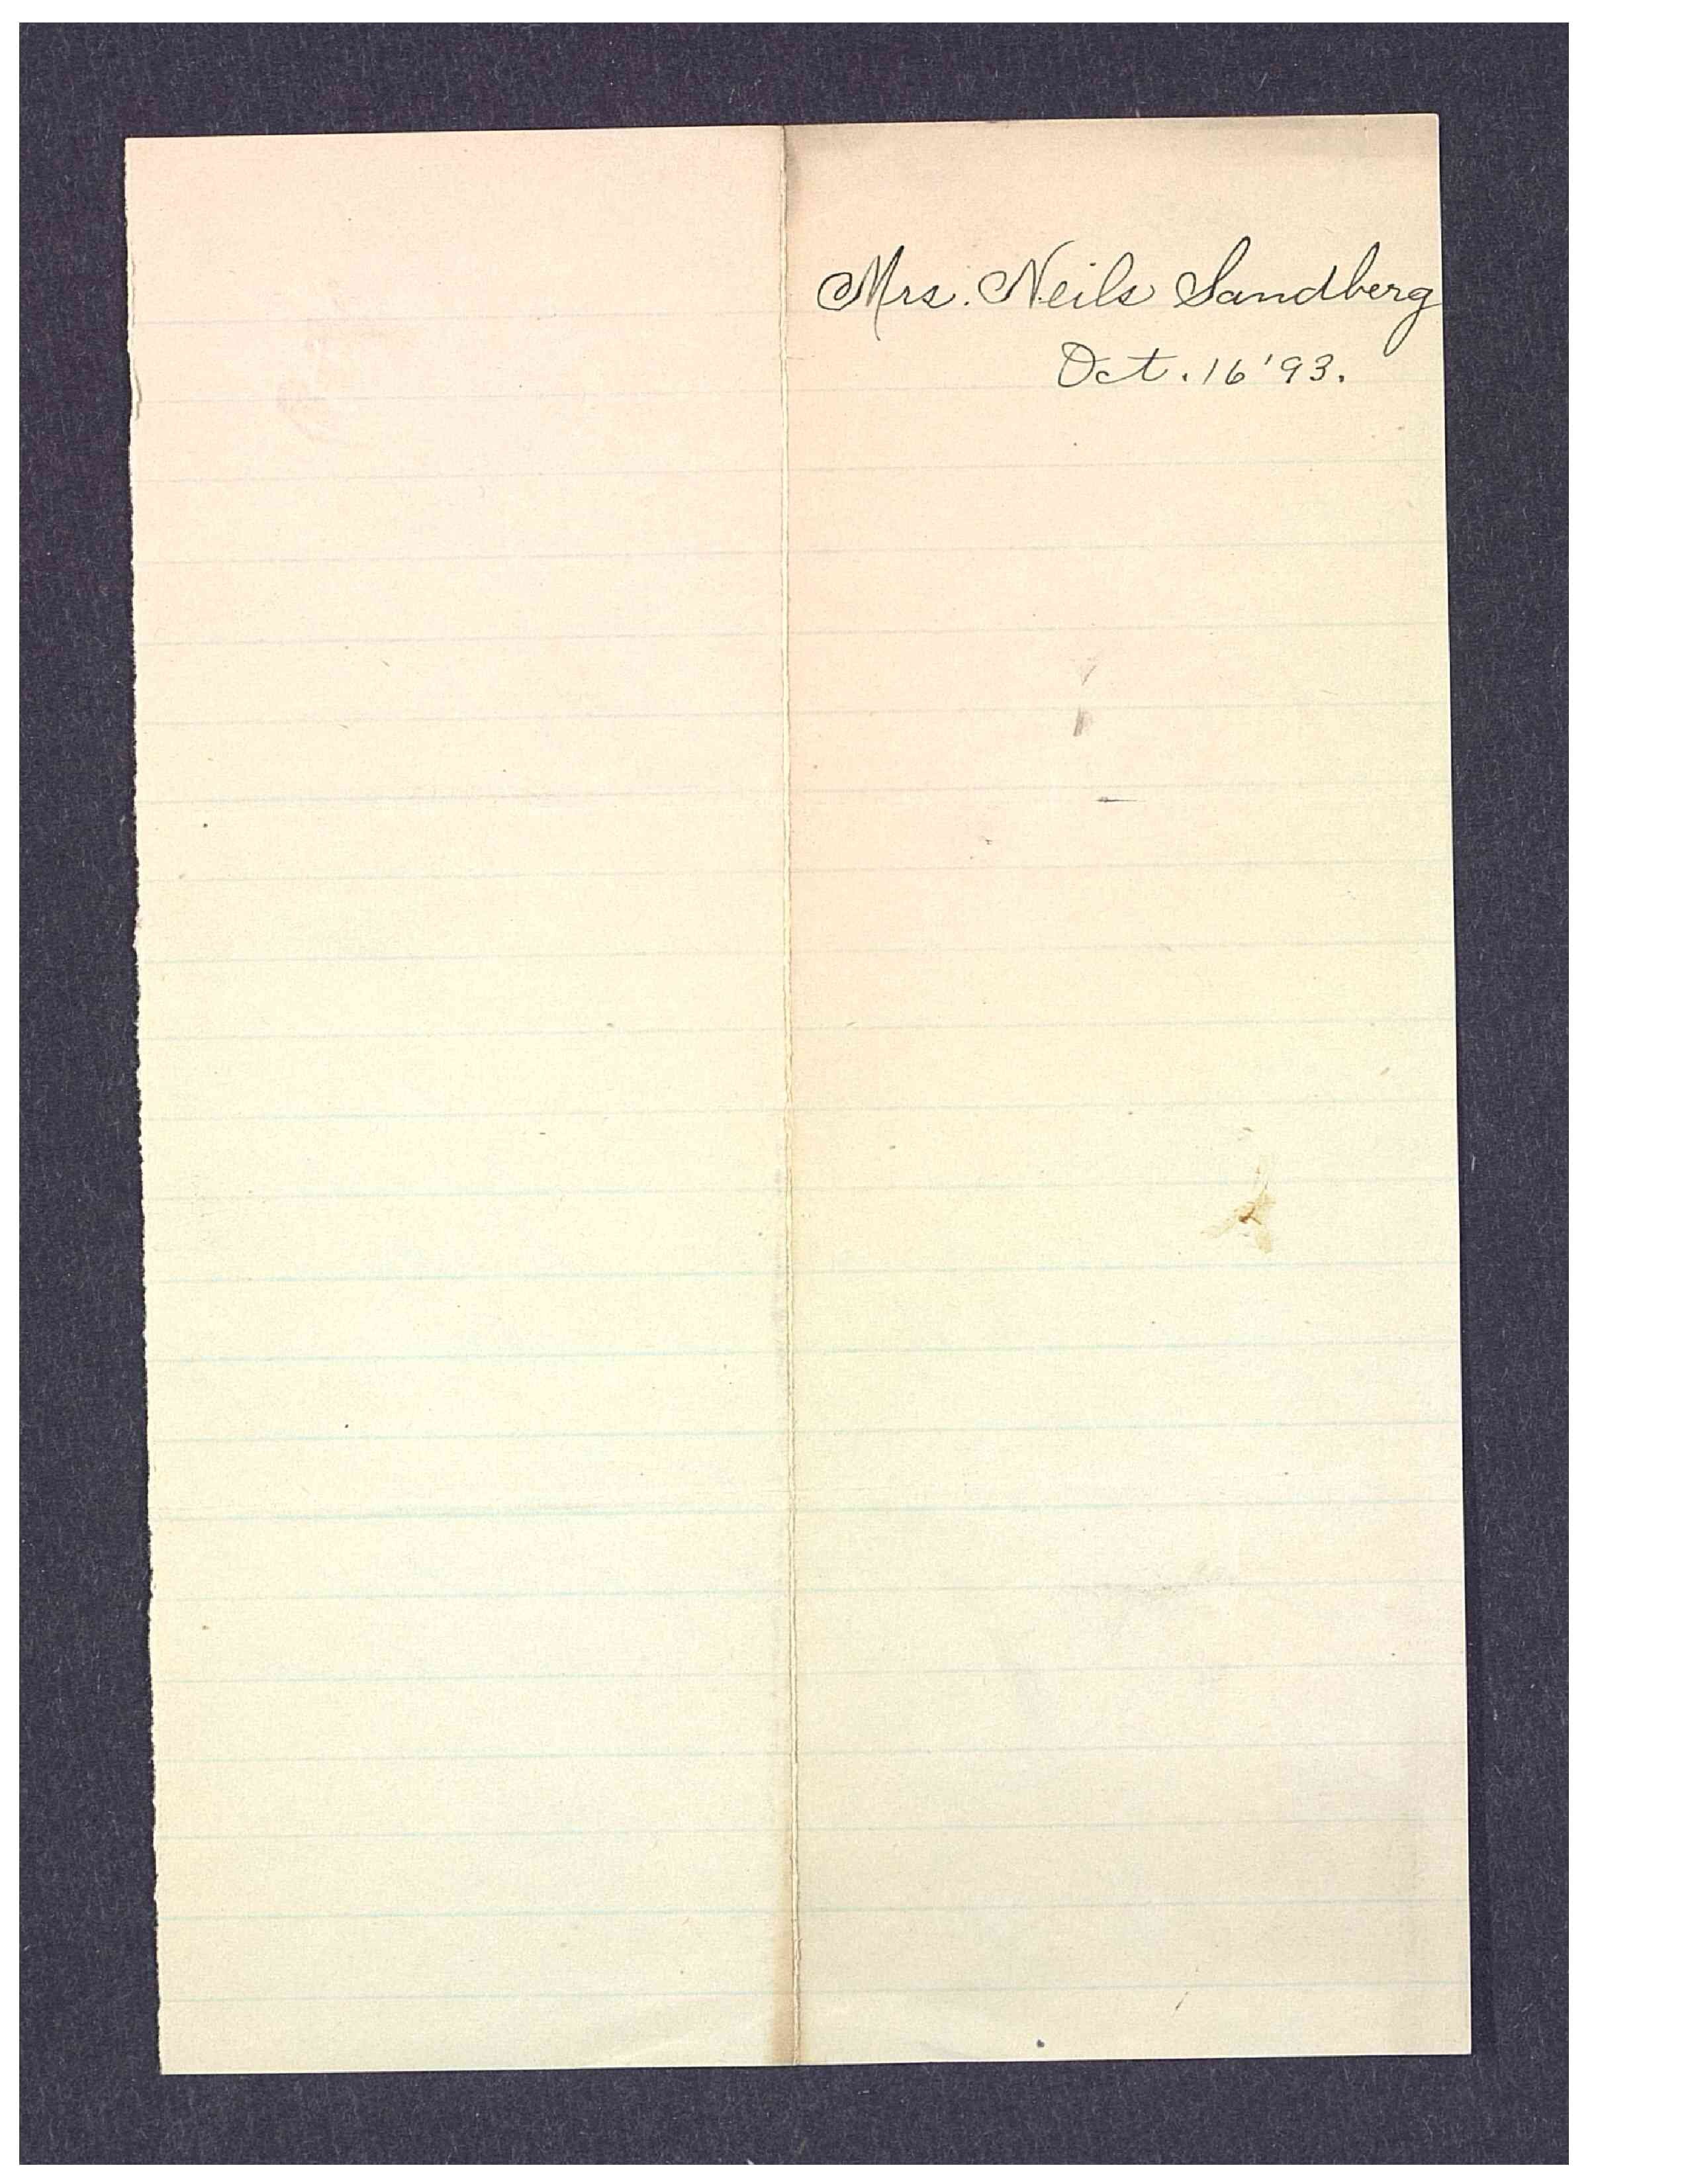 Mrs. Neils Sandberg
Oct. 16 '93.